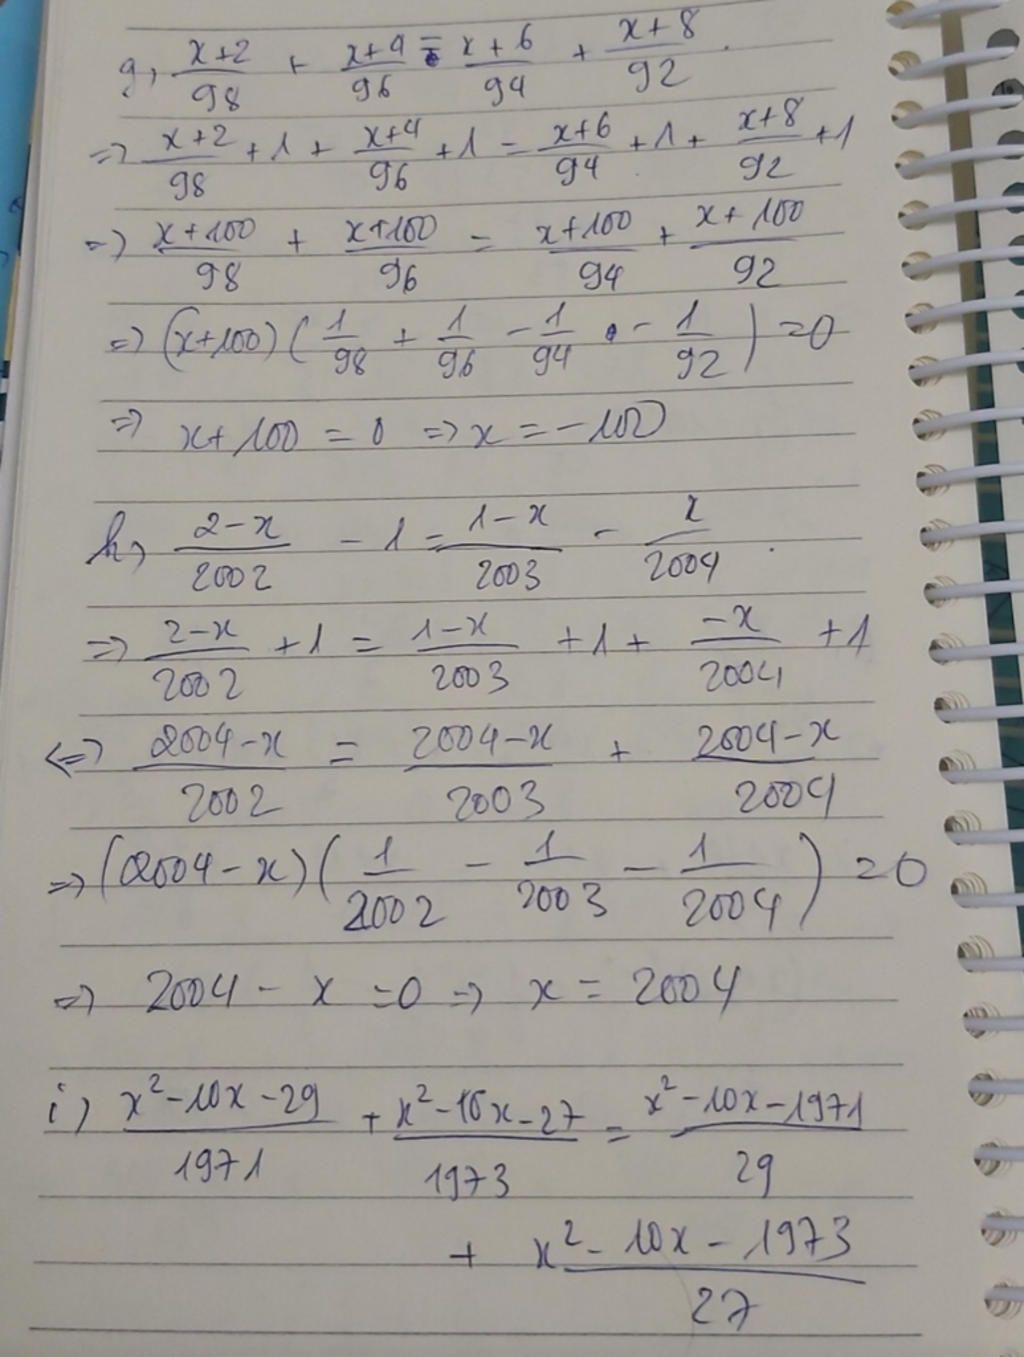 g, (x+2)/98 + (x+4)/96 = (x+6)/94 + (x+8)/92 .
=> (x+2)/98 + 1 + (x+4)/96 + 1 = (x+6)/94 + 1 + (x+8)/92 + 1
=> (x+100)/98 + (x+100)/96 = (x+100)/94 + (x+100)/92
=> (x+100)(1/98 + 1/96 - 1/94 - 1/92) = 0
=> x+100 = 0 => x = -100
h, (2-x)/2002 - 1 = (1-x)/2003 - x/2004 .
=> (2-x)/2002 + 1 = (1-x)/2003 + 1 + (-x)/2004 + 1
<=> (2004-x)/2002 = (2004-x)/2003 + (2004-x)/2004
=> (2004-x)(1/2002 - 1/2003 - 1/2004) = 0
=> 2004 - x = 0 => x = 2004
i) (x²-10x-29)/1971 + (x²-10x-27)/1973 = (x²-10x-1971)/29
+ (x²-10x-1973)/27